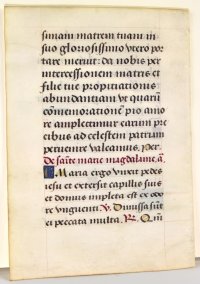 simam matrem tuam in
suo gloriosissimo utero por
tare meruit: da nobis per
intercessionem matris et
filie tue propitiationis
abundantiam ut quarū
comemorationē pio amo
re amplectimur earum pre
cibus ad celestem patrum
peruenire valeamus. Per.
De sācte marie magdalene. añ.
MAria ergo vnxit pedes
iesu et extersit capillis suis
et domus impleta est ex odo
re vnguenti. V. Dimissa sūt
ei peccata multa. R. Qm̄